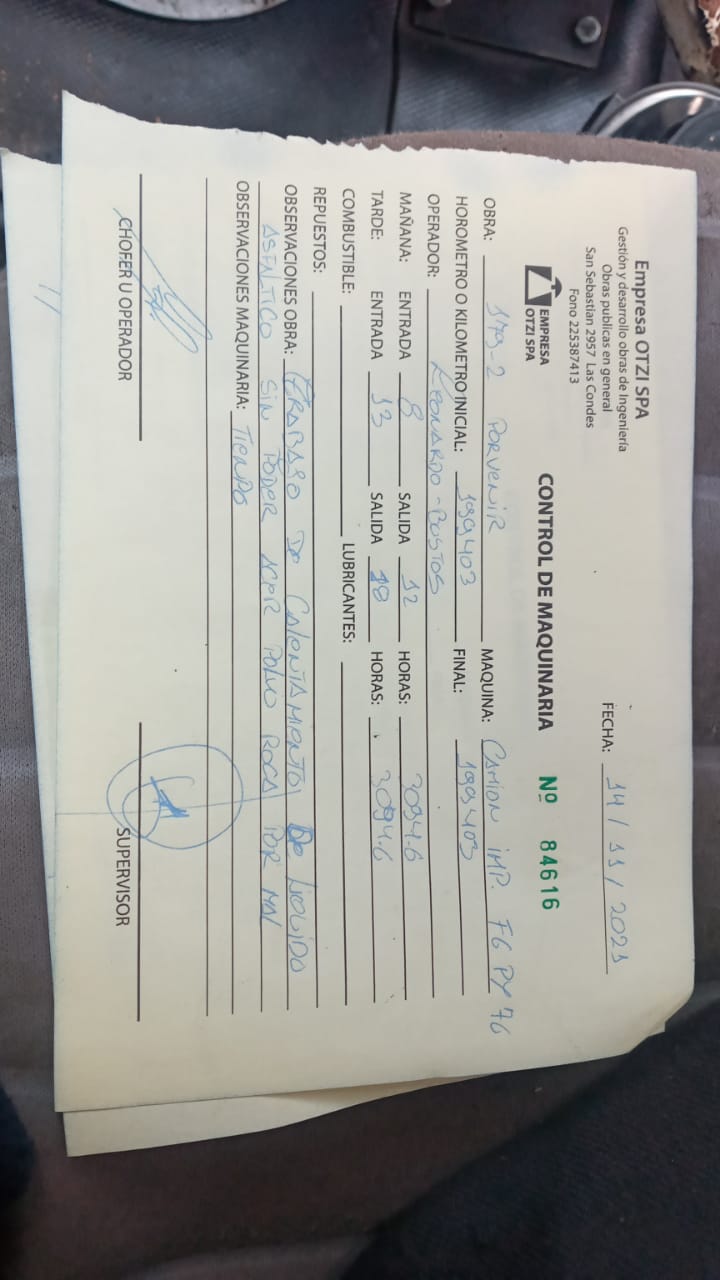 Empresa OTZI SPA
Gestión y desarrollo obras de Ingeniería
Obras publicas en general
San Sebastian 2957 Las Condes
Fono 225387413
EMPRESA
OTZI SPA
FECHA: 14 / 11 / 2021
CONTROL DE MAQUINARIA Nº 84616
OBRA: 179-2 PORVENIR MAQUINA: CAMION IMP. FG PY 76
HOROMETRO O KILOMETRO INICIAL: 199403 FINAL: 199403
OPERADOR: LEONARDO - BUSTOS
MAÑANA: ENTRADA 8 SALIDA 12 HORAS: 3094.6
TARDE: ENTRADA 13 SALIDA 18 HORAS: 3094.6
COMBUSTIBLE: LUBRICANTES:
REPUESTOS:
OBSERVACIONES OBRA: TRABAJO DE CALENTAMIENTO DE LIQUIDO
ASFALTICO SIN PODER ACER POLVO ROCA POR MAL
OBSERVACIONES MAQUINARIA: TIENPO
CHOFER U OPERADOR SUPERVISOR